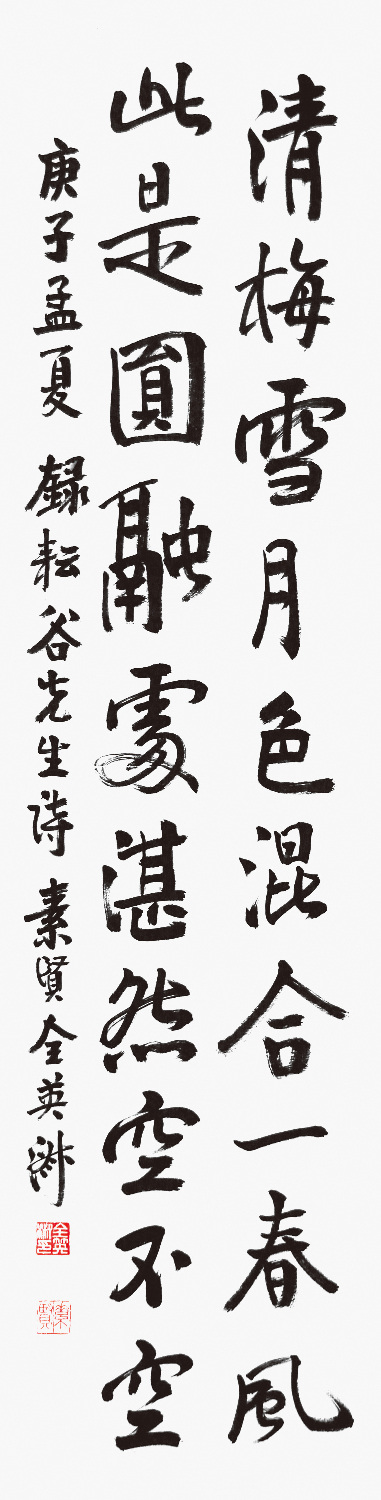 清梅雪月色混合一春風
此是圓融處湛然空不空
庚子孟夏 錄耘谷先生詩 素賢全英淑